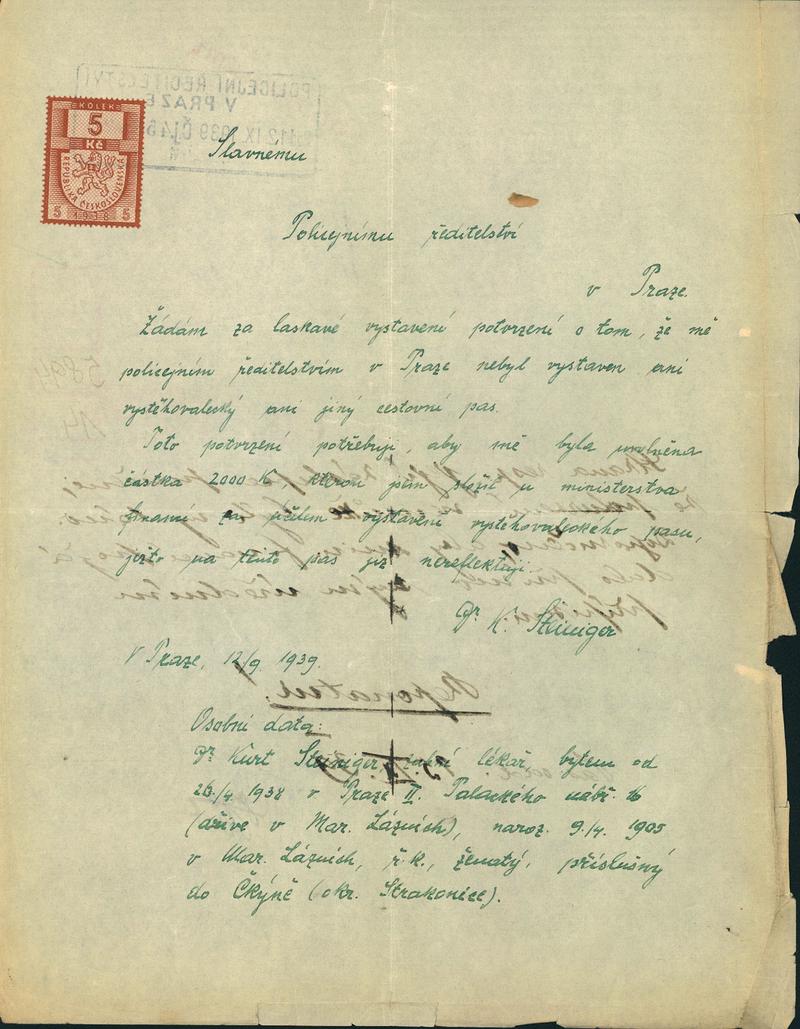 KOLEK
5
Kč
REPUBLIKA ČESKOSLOVENSKÁ
5 1938 5
POLICEJNÍ ŘEDITELSTVÍ
V PRAZE
12 IX 1939
Slavnému
Policejnímu ředitelství
v Praze.
Žádám za laskavé vystavení potvrzení o tom, že mě
policejním ředitelstvím v Praze nebyl vystaven ani
vystěhovalecký ani jiný cestovní pas.
Toto potvrzení potřebuji, aby mě byla uvolněna
částka 2000 K, kterou jsem složil u ministerstva
financí za účelem vystavení vystěhovaleckeho pasu,
ježto na tento pas již nereflektuji.
Dr K. Steiniger
V Praze, 12/9 1939.
Osobní data:
Dr Kurt Steiniger, zubní lékař, bytem od
26./4. 1938 v Praze II. Palackého nábř. 16
(dříve v Mar. Lázních), naroz. 9./4. 1905
v Mar. Lázních, ř.k., ženatý, příslušný
do Čkýně (okr. Strakonice).